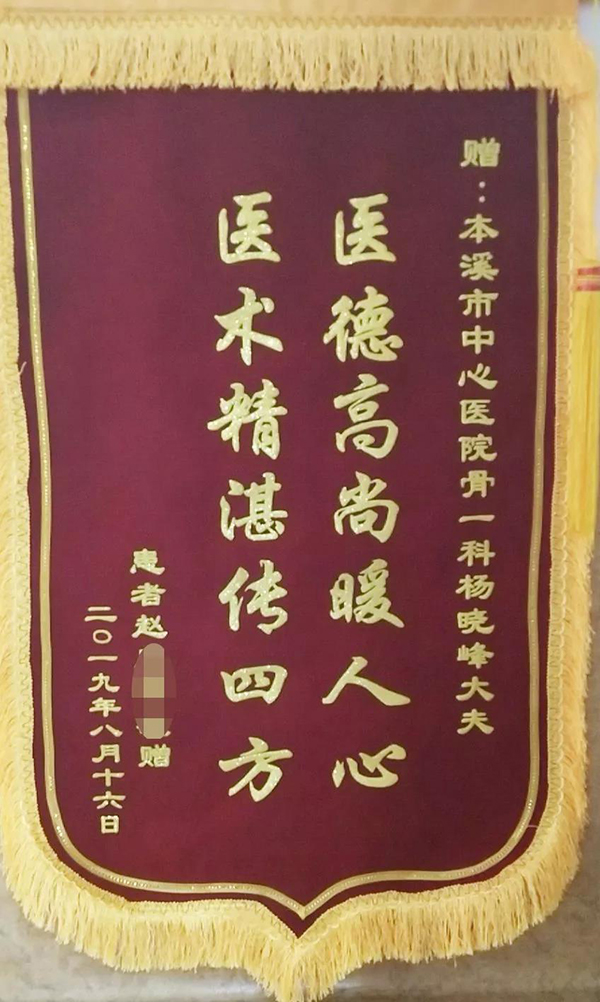 赠：本溪市中心医院骨一科杨晓峰大夫
医德高尚暖人心
医术精湛传四方
患者赵 赠
二〇一九年八月十六日